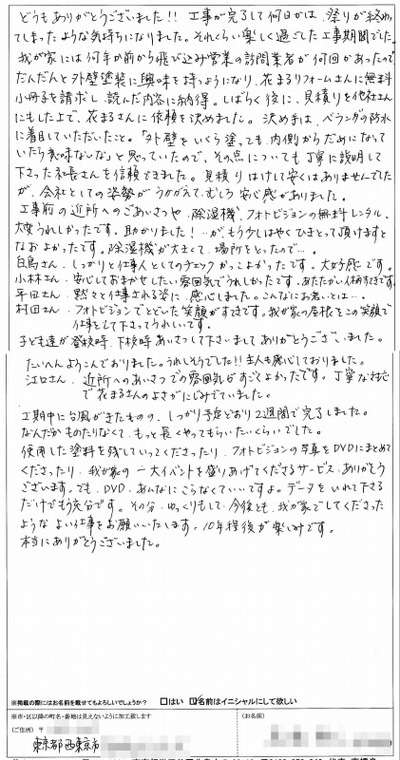 どうもありがとうございました!! 工事が完了して何日かは、祭りが終わっ
てしまったような気持ちになりました。それくらい楽しく過ごした工事期間でした。
我が家には何年か前から飛び込み営業の訪問業者が何回かあったので
だんだんと外壁塗装に興味を持つようになり、花まるリフォームさんに無料
小冊子を請求し、読んだ内容に納得。しばらく後に、見積りを他社さん
にもした上で、花まるさんに依頼を決めました。決め手は、ベランダの防水
に着目していただいたこと。「外壁をいくら塗っても、内側からだめになって
いたら意味ないな」と思っていたので、その点についても丁寧に説明して
下さった社長さんを信頼できました。見積りはけして安くはありませんでした
が、会社としての姿勢がうかがえて、むしろ安心感がありました。
工事前の近所へのごあいさつや、除湿機、フォトビジョンの無料レンタル、
大変うれしかったです。助かりました!…が、もう少しはやくひきとって頂けますと
なおよかったです。除湿機が大きくて、場所をとったので…。
白鳥さん、しっかりと仕事人としてのチェックがかっこよかったです。大好感です。
小林さん、安心しておまかせしたい雰囲気でうれしかったです。あたたかい人柄すてきです。
平田さん、黙々と仕事される姿に感心しました。こんなにお若いとは…。
村田さん、フォトビジョンでとどいた笑顔がすてきです。我が家の屋根をこの笑顔で
仕事をして下さってうれしいです。
子ども達が登校時、下校時あいさつして下さいましてありがとうございました。
たいへんよろこんでおりました。うれしそうでした!! 主人も感心しておりました。
江口さん、近所へのあいさつでの雰囲気がすごくよかったです。丁寧な対応
で花まるさんのよさがにじみでていました。
工期中に台風がきたものの、しっかり予定どおり2週間で完了しました。
なんだかものたりなくて、もっと長くやってもらいたいくらいでした。
使用した塗料を残していってくださったり、フォトビジョンの写真をDVDにまとめて
くださったり、我が家の一大イベントを盛りあげてくださるサービス、ありがとう
ございます。でも、DVD、あんなにこらなくていいですよ。データをいれて下さる
だけでもう充分です。その分、ゆっくりもして、今後とも、我が家でしてくださった
ようなよい仕事をお願いいたします。10年程後が楽しみです。
本当にありがとうございました。
※掲載の際にはお名前を載せてもよろしいでしょうか? □はい ☑名前はイニシャルにして欲しい
※市・区以降の町名・番地は見えないように加工致します
(ご住所) 〒
(お名前)
東京都西東京市